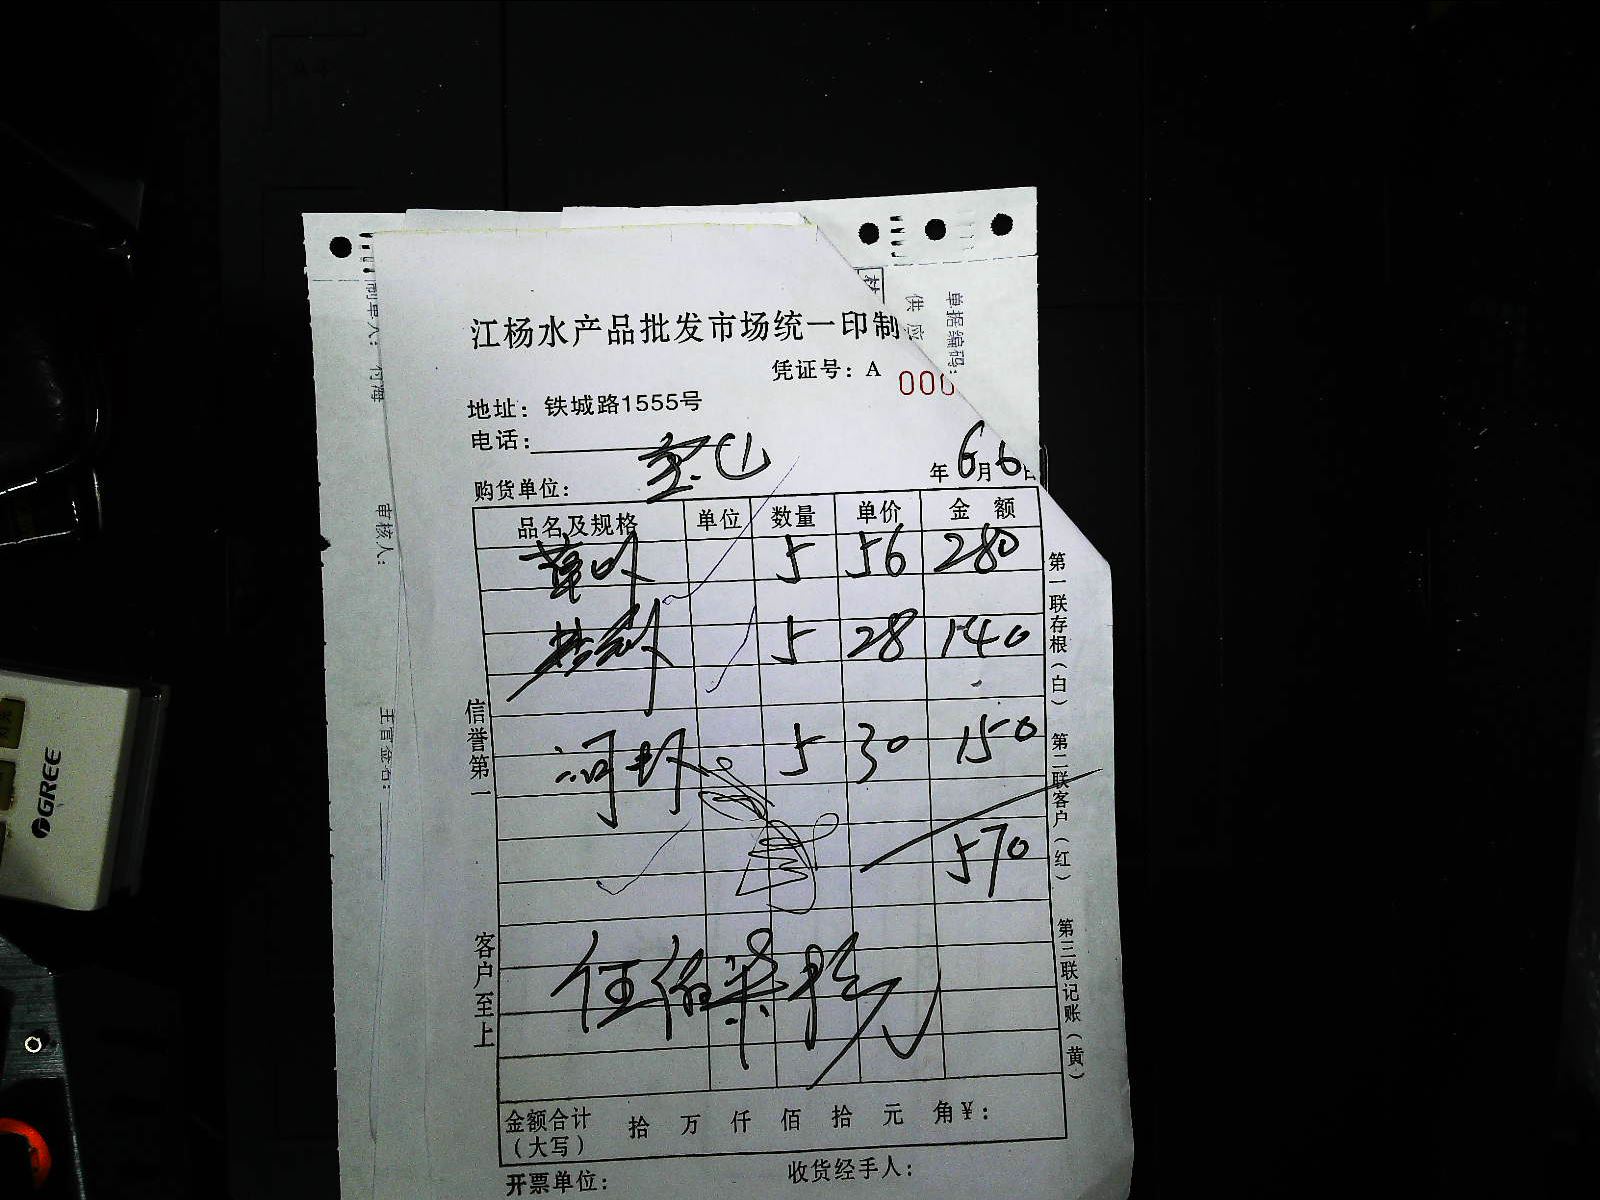 江杨水产品批发市场统一印制
凭证号：A 000
地址：铁城路1555号
电话：
购货单位：
年6月6日
品名及规格 单位 数量 单价 金额
5 56 280
5 28 140
河虾 5 30 150
570
伍佰柒拾元
金额合计（大写） 拾 万 仟 佰 拾 元 角¥：
开票单位： 收货经手人：
信誉第一
客户至上
第一联存根（白）
第二联客户（红）
第三联记账（黄）
供应
单据编码：
制单人：
审核人：
主管签名：
GREE